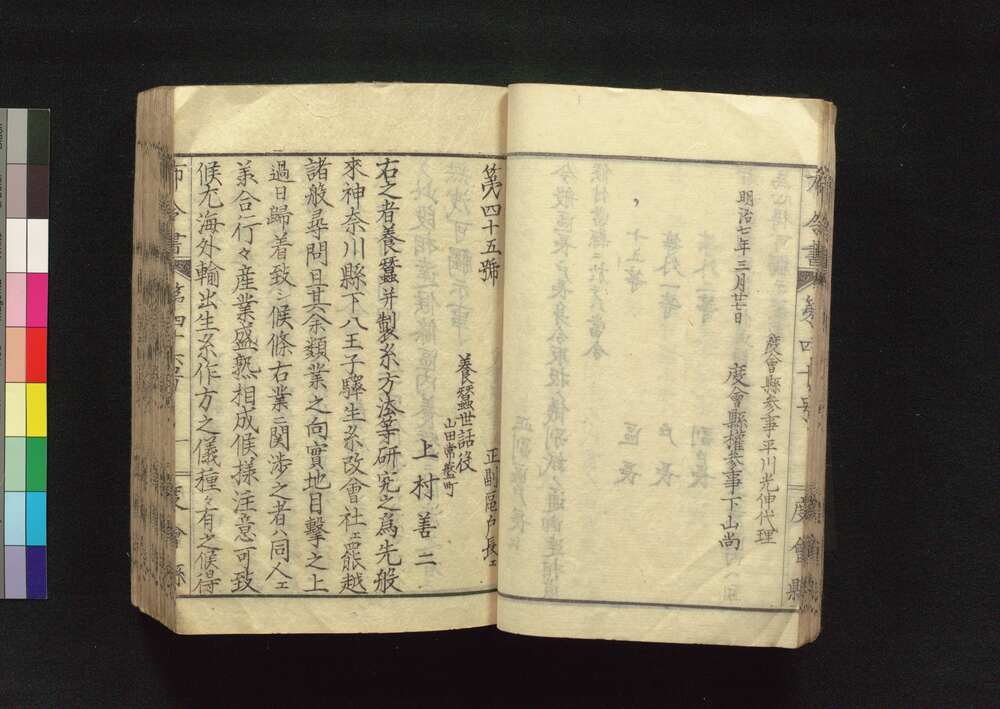 明治七年三月廿二日
度會縣參事平川光伸代理
度會縣權參事下山尚
第四十五號
正副區戸長ェ
養蠶世話役
山田常盤町
上村善二
右之者養蠶并製糸方法等研究之為先般
來神奈川縣下八王子驛生糸改會社ェ罷越
諸般尋問且其余類業之向實地目擊之上
過日歸着致シ候條右業ニ関渉之者ハ同人ェ
篤合行々産業盛熟相成候様注意可致
候尤海外輸出生糸作方之儀種々有之候得
布令書
度會縣